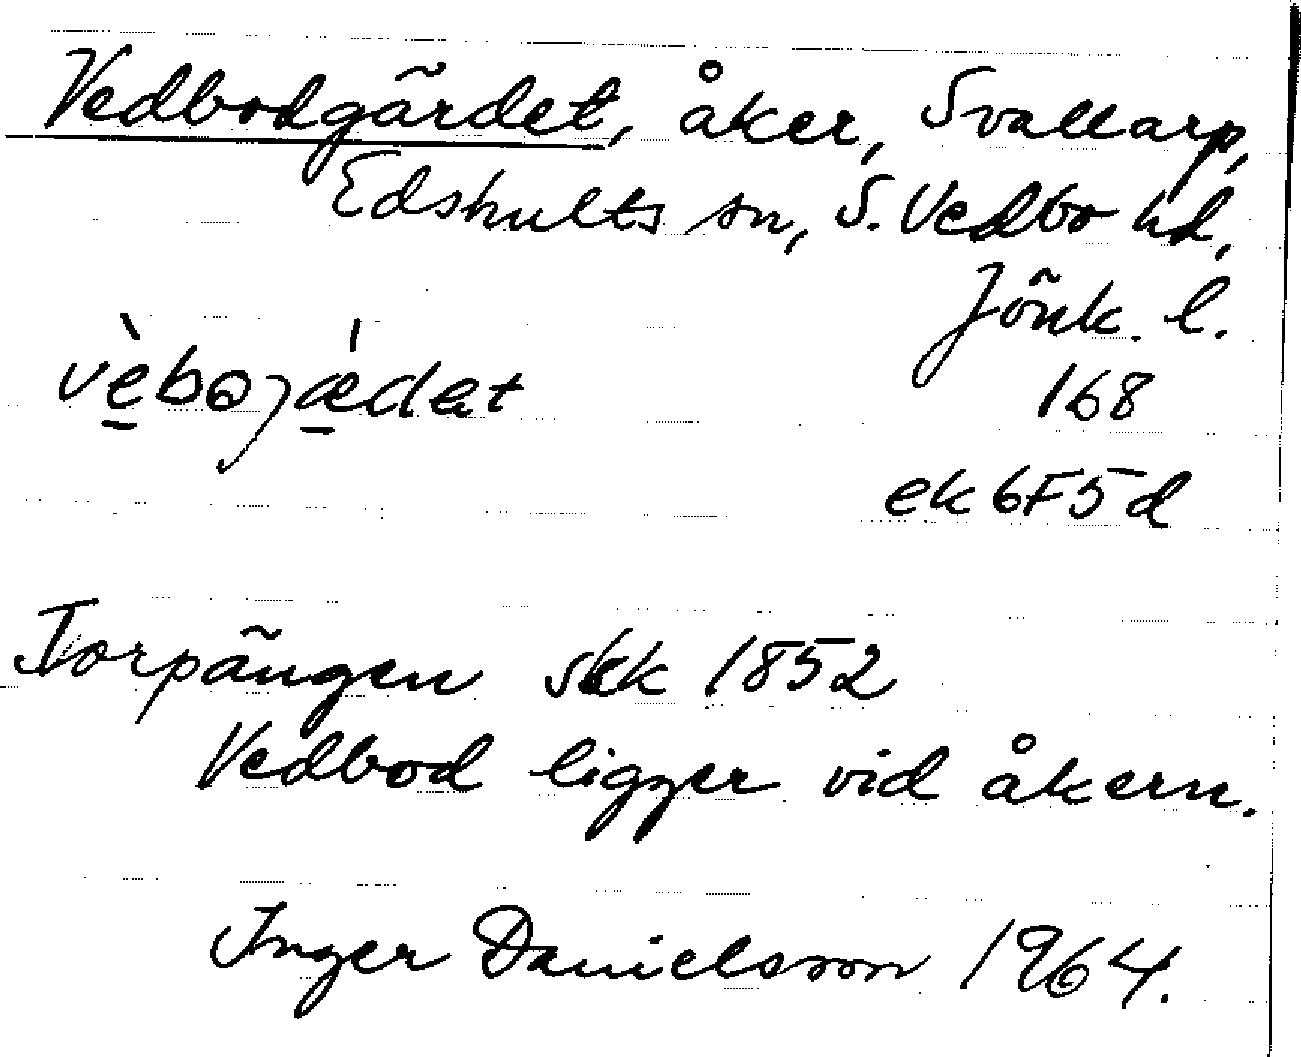 Vedbodgärdet, åker, Svallarp,
Edshults sn, S. Vedbo hd,
Jönk. l.
vèbojǽdet
168
ek 6F5d
Torpängen skk 1852
Vedbod ligger vid åkern.
Inger Danielsson 1964.